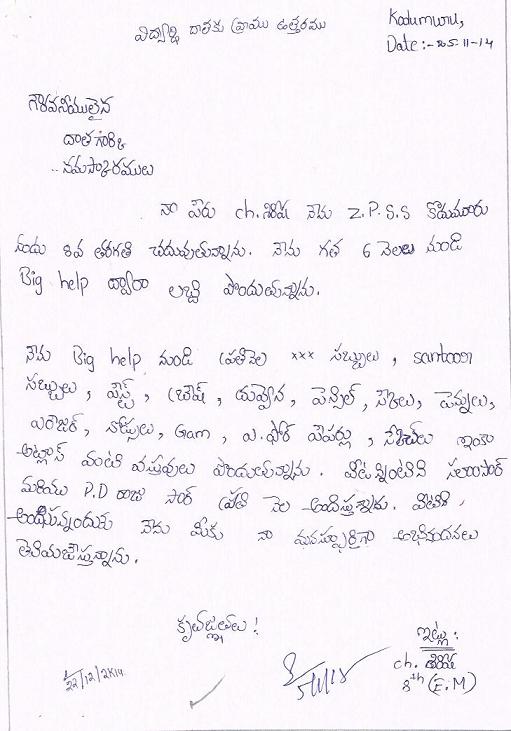 విద్యార్థి దాతకు వ్రాయు ఉత్తరము
Kodumuru,
Date:- 25-11-14
గౌరవనీయులైన
దాత గారికి
నమస్కారములు
నా పేరు ch. శిరీష నేను Z.P.S.S కొడుమూరు
నందు 8వ తరగతి చదువుతున్నాను. నేను గత 6 నెలలు నుండి
Big help ద్వారా లబ్ది పొందుతున్నాను.
నేను Big help నుండి ప్రతినెల xxx సబ్బులు, santoor
సబ్బులు, పేస్ట్, బ్రెష్, దువ్వెన, పెన్సిల్, స్కేలు, పెన్నులు,
ఎరేజర్, నోట్సులు, Gam, ఎ.ఫోర్ పేపర్లు, స్కెచ్‌లు ఇంకా
అట్లాస్ వంటి వస్తువులు పొందుతున్నాను. వీటన్నింటిని సార్
మరియు P.D రాజు సార్ ప్రతి నెల అందిస్తున్నారు. వీటిని
అందిస్తున్నందుకు నేను మీకు నా మనస్ఫూర్తిగా అభినందనలు
తెలియజేస్తున్నాను.
కృతజ్ఞతలు!
ఇట్లు:
ch. శిరీష
8th (E.M)
22/12/2K14